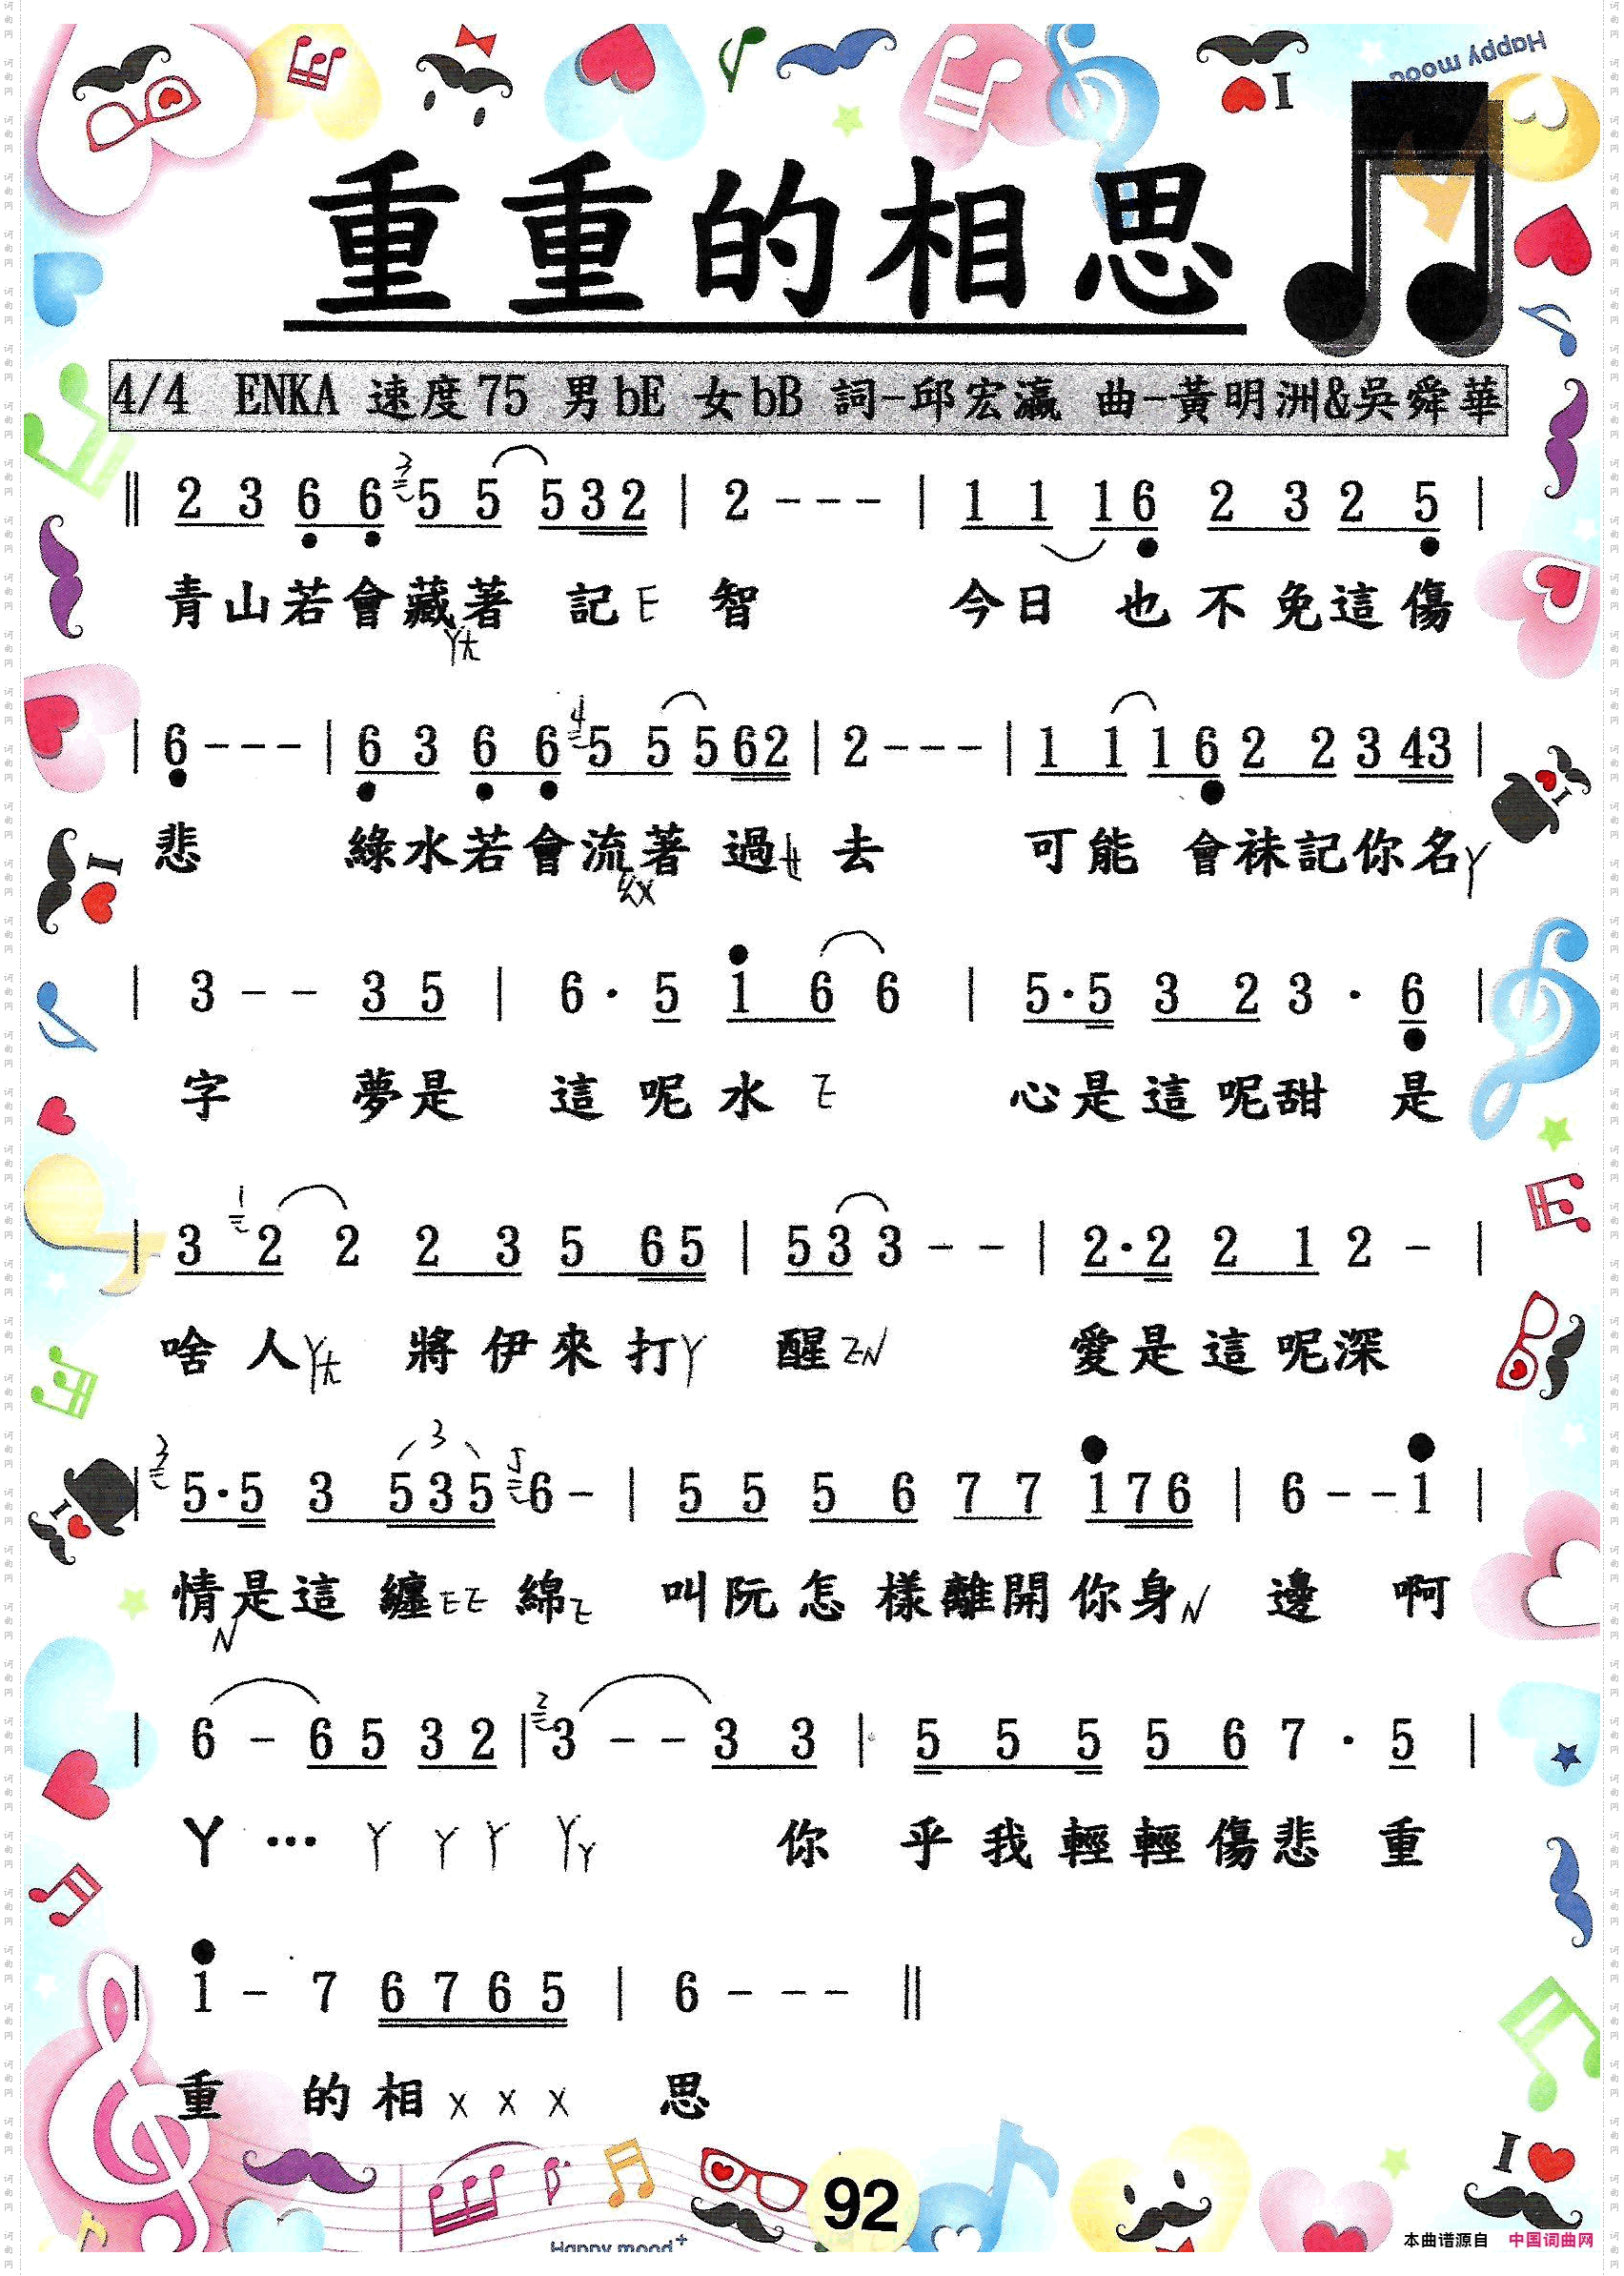 Happy mood
I
重重的相思
4/4 ENKA 速度75 男bE 女bB 詞-邱宏瀛 曲-黃明洲&吳舜華
‖ 2 3 6 6 3 5 5 5 3 2 | 2 - - - | 1 1 1 6 2 3 2 5 |
青山若會藏著 記ㄛ 智 今日 也不免這傷
ㄚㄤ
| 6 - - - | 6 3 6 6 4 5 5 5 6 2 | 2 - - - | 1 1 1 6 2 2 3 4 3 |
悲 綠水若會流著 過ㄝ 去 可能 會袜記你名ㄚ
ㄠㄨ
| 3 - - 3 5 | 6 · 5 1 6 6 | 5 · 5 3 2 3 · 6 |
字 夢是 這呢水 心是這呢甜 是
| 3 1 2 2 2 3 5 6 5 | 5 3 3 - - | 2 · 2 2 1 2 - |
啥人ㄚㄤ 將伊來打ㄚ 醒 愛是這呢深
3 5 · 5 3 5 3 5 5 6 - | 5 5 5 6 7 7 1 7 6 | 6 - - 1 |
3
情是這 纏 綿 叫阮怎樣離開你身 邊 啊
| 6 - 6 5 3 2 | 2 3 - - 3 3 | 5 5 5 5 6 7 · 5 |
ㄚ … ㄚ ㄚ ㄚ ㄚㄚ 你 乎我輕輕傷悲 重
| 1 - 7 6 7 6 5 | 6 - - - ‖
重 的相 x x x 思
I
I
I
92
Happy mood+
本曲谱源自 中国词曲网